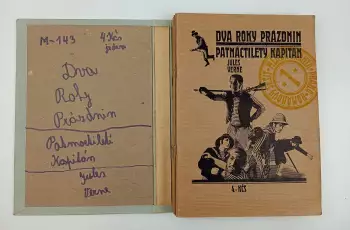 M-143 4 Kčs
Dva
Roky
Prázdnin
Patnactiletí
Kapitán
Jules
Verne
DVA ROKY PRÁZDNIN
PATNÁCTILETÝ KAPITÁN
JULES
VERNE
4,- KČS